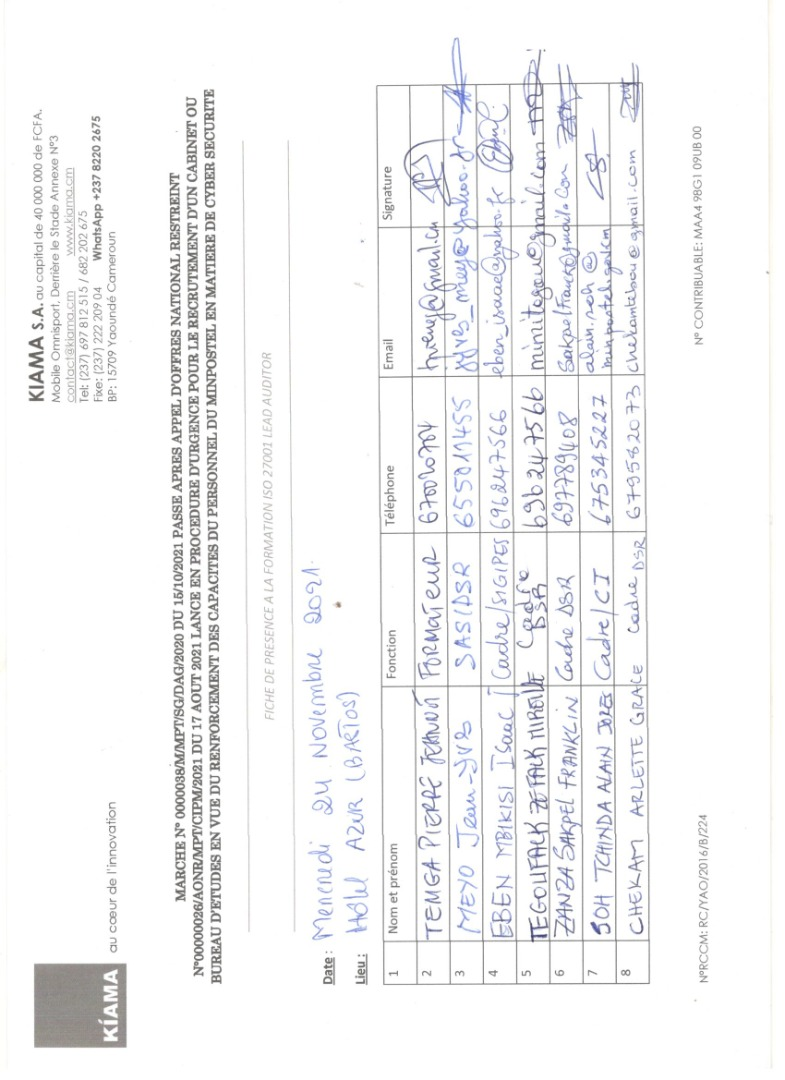 KIAMA
au cœur de l'innovation
KIAMA S.A. au capital de 40 000 000 de FCFA.
Mobile Omnisport, Derrière le Stade Annexe N°3
contact@kiama.cm www.kiama.cm
Tel: (237) 697 812 515 / 682 202 675
Fixe: (237) 222 209 04 WhatsApp +237 8220 2675
BP: 15709 Yaoundé Cameroun
MARCHE N° 0000038/M/MPT/SG/DAG/2020 DU 15/10/2021 PASSE APRES APPEL D'OFFRES NATIONAL RESTREINT
N°00000026/AONR/MPT/CIPM/2021 DU 17 AOUT 2021 LANCE EN PROCEDURE D'URGENCE POUR LE RECRUTEMENT D'UN CABINET OU
BUREAU D'ETUDES EN VUE DU RENFORCEMENT DES CAPACITES DU PERSONNEL DU MINPOSTEL EN MATIERE DE CYBER SECURITE
FICHE DE PRESENCE A LA FORMATION ISO 27001 LEAD AUDITOR
Date : Mercredi 24 Novembre 2021.
Lieu : Hôtel AZUR (BASTOS)
1 Nom et prénom Fonction Téléphone Email Signature
2 TEMGA PIERRE FORMATEUR
3 MEYO Jean-YVES SAS/DSR 655011455 jyves_meyo@yahoo.fr
4 EBEN MBIKISI Isaac J Cadre/SIGIPES 696247566 eben_isaac@yahoo.fr
5 TEGOUFALK ZEFALK MIREILLE Cadre DSR 696247566
6 ZANZA SAKPEL FRANKLIN Cadre DSR 697789408
7 SOH TCHINDA ALAIN Cadre/CI 675345227 alain.soh@
8 CHEKAM ARLETTE GRACE Cadre DSR 679582073 chekamtebou@gmail.com
N°RCCM: RC/YAO/2016/B/224
N° CONTRIBUABLE: MAA4 98G1 09UB 00